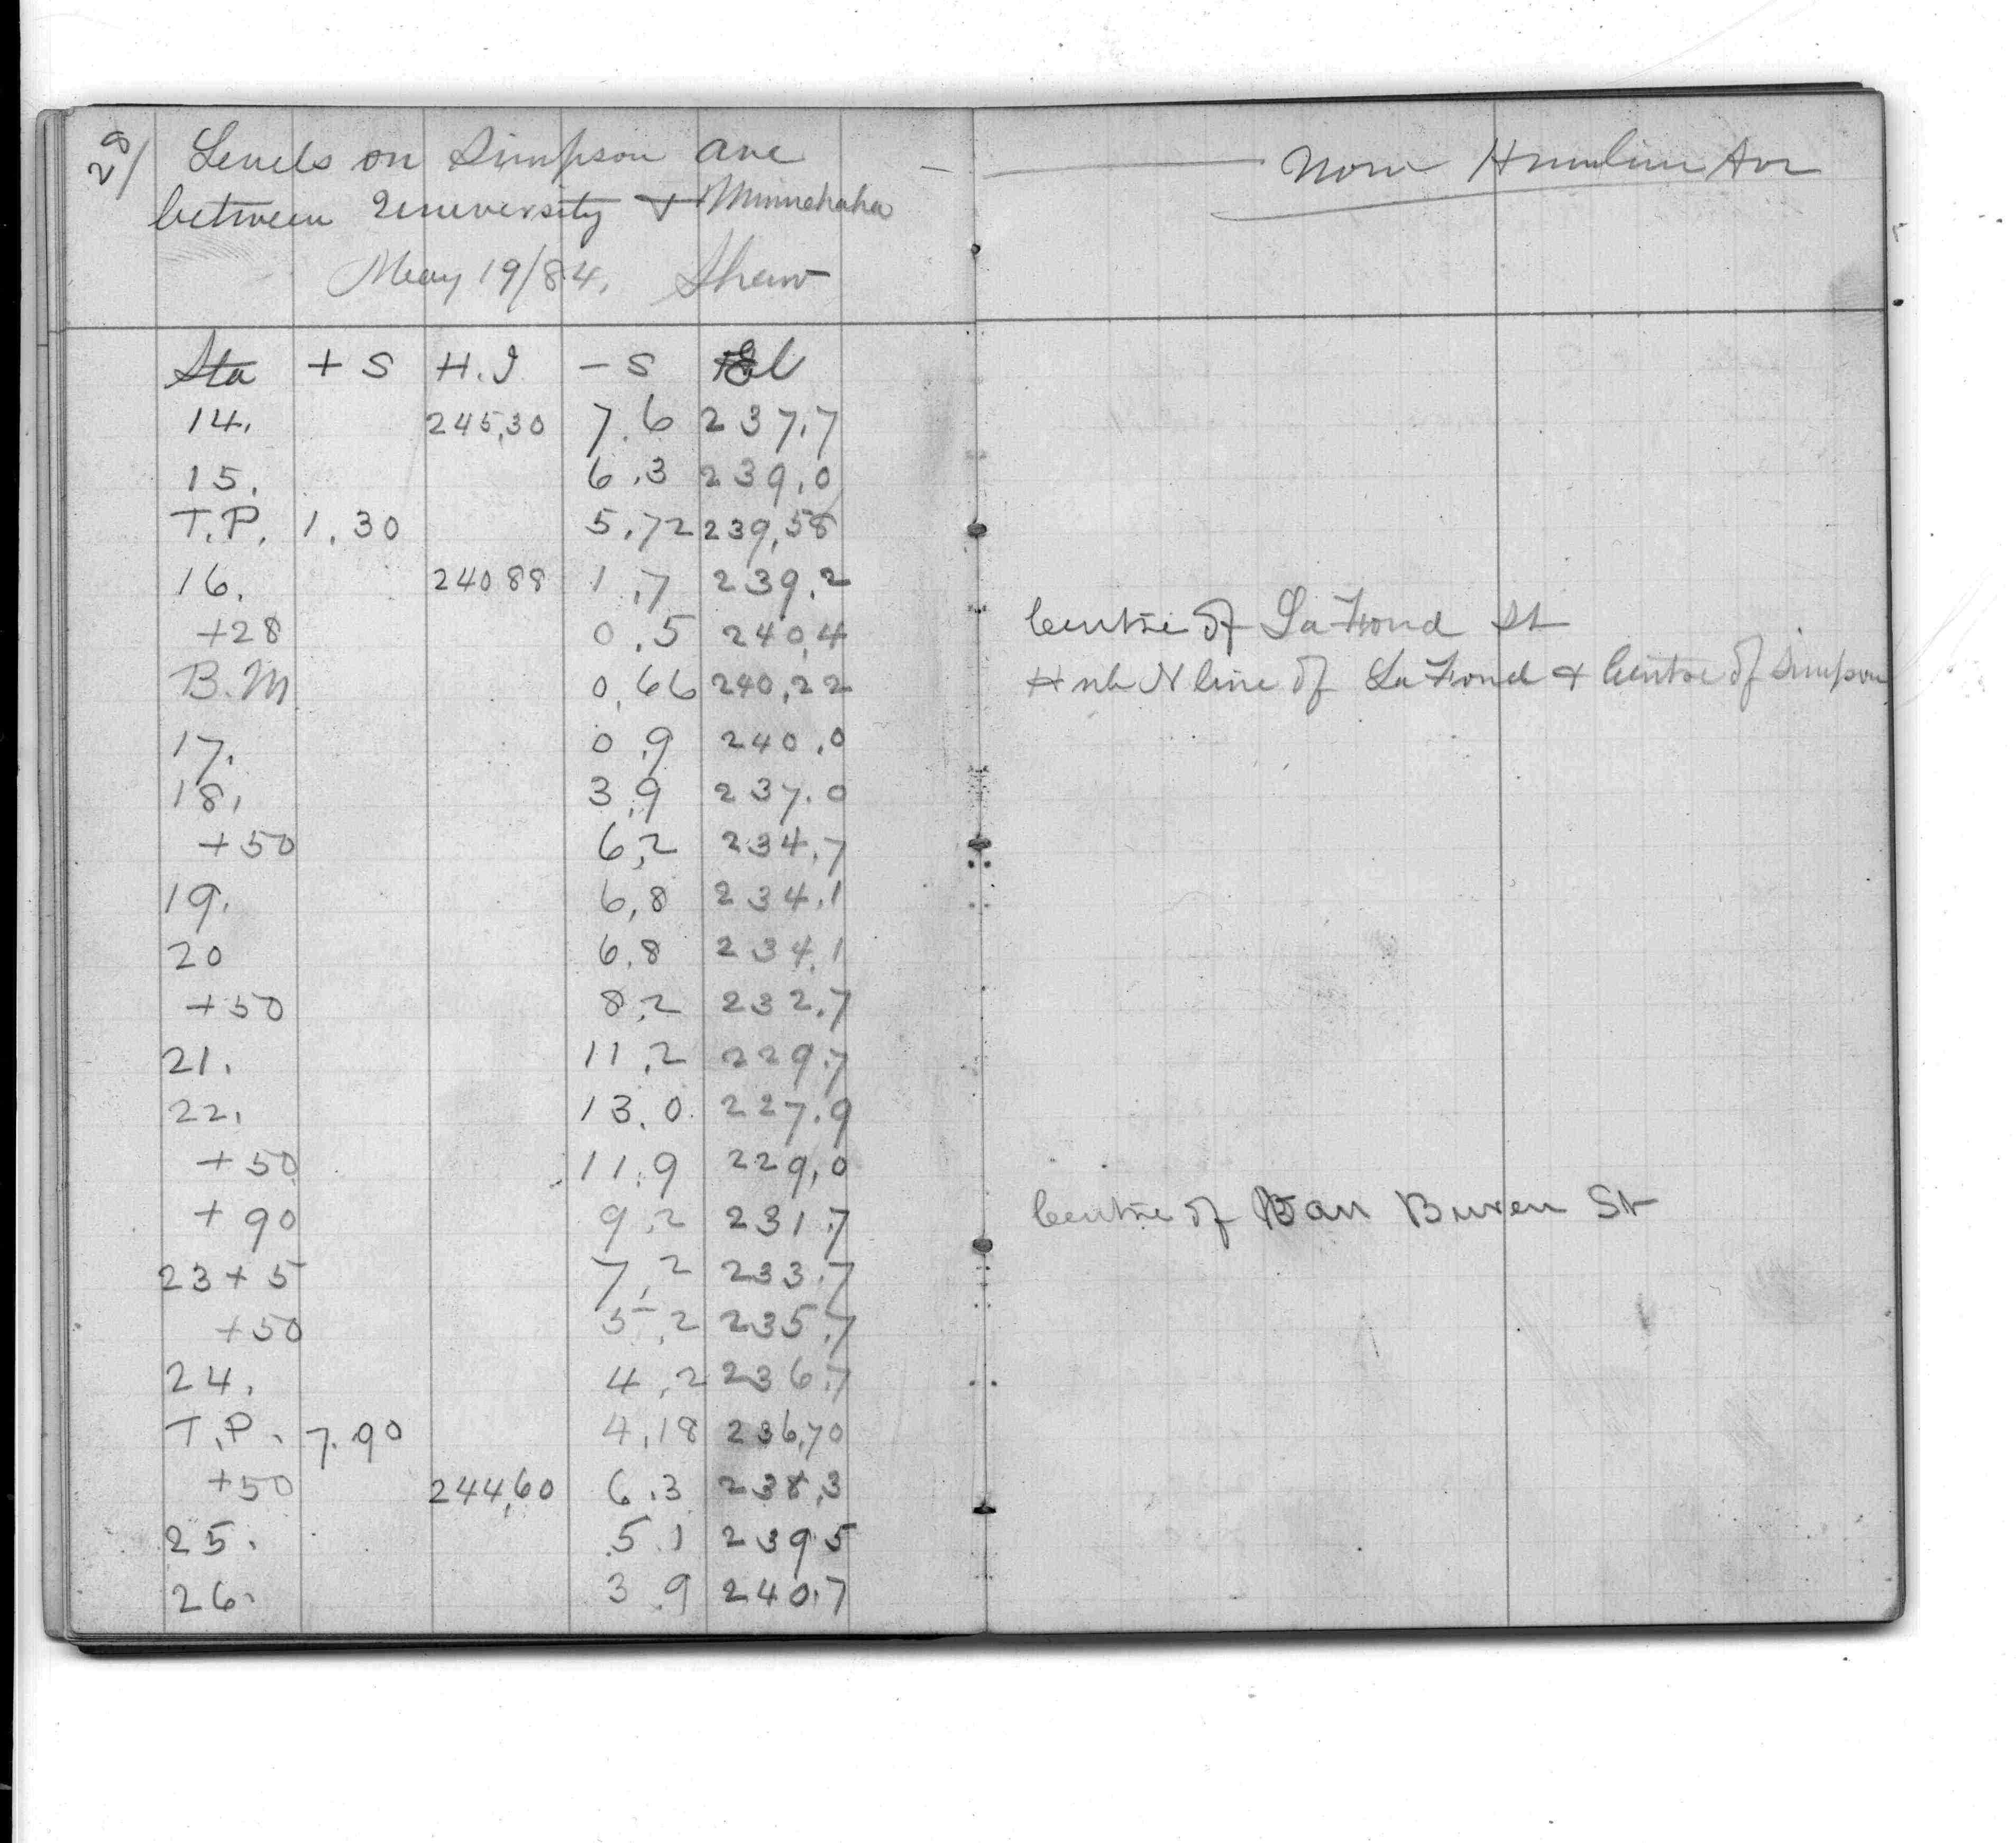 29/ Levels on Simpson ave — now Hamline Ave
between University & Minnehaha
May 19/84. Shaw
Sta + S H.I. – S El
14. 245,30 7.6 237,7
15. 6.3 239,0
T.P. 1,30 5,72 239,58
16. 24088 1,7 239,2
+28 0,5 240,4 Centre of La Fond St
B.M 0,66 240,22 Hub N line of La Fond & Centre of Simpson
17. 0.9 240.0
18, 3,9 237.0
+50 6,2 234,7
19. 6,8 234,1
20 6.8 234,1
+50 8,2 232,7
21. 11,2 229,7
22, 13,0 227.9
+50 11.9 229,0
+90 9,2 231,7 Centre of Van Buren St
23+5 7,2 233.7
+50 5,2 235,7
24. 4,2 236.7
T.P. 7.90 4,18 236,70
+50 244,60 6.3 238,3
25. 5 1 2395
26. 3.9 240.7